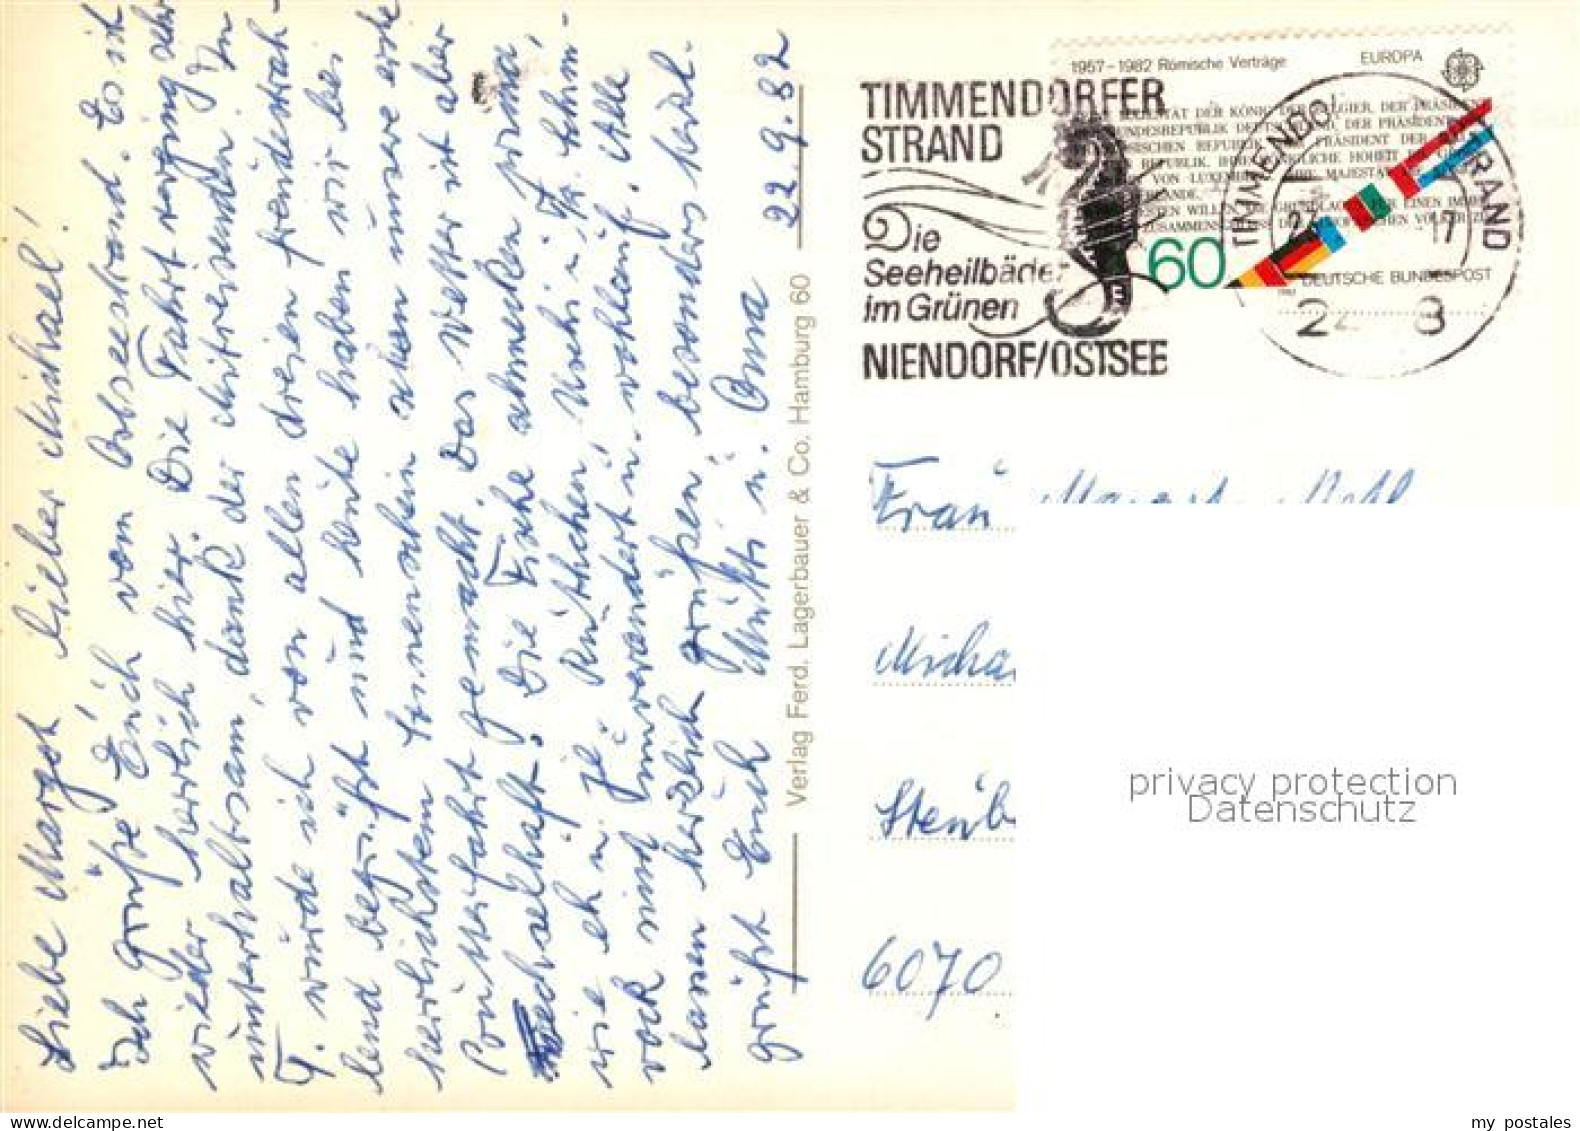 Liebe Margot, lieber Michael!
Ich grüße Euch vom Ostseestrand. Es ist
wieder herrlich hier. Die Fahrt verging sehr
unterhaltsam, dank der Mitreisenden. In
T. wurde ich von allen dreien freudestrah-
lend begrüßt und heute haben wir bei
herrlichstem Sonnenschein schon unsere erste
gemacht. Das Wetter ist aber
wechselhaft. Die Fische schmecken prima,
wie eh u. je. Ruthchen, Uschi u. Fr. Schm-
sind unverändert u. wohlauf. Alle
lassen herzlich grüßen besonders herzl.
grüßt Euch Mutti u. Oma 22.9.82
Verlag Ferd. Lagerbauer & Co. Hamburg 60
TIMMENDORFER
STRAND
Die
Seeheilbäder
im Grünen
NIENDORF/OSTSEE
1957-1982 Römische Verträge EUROPA
60
DEUTSCHE BUNDESPOST
TIMMENDORFER STRAND
Frau
Micha
Steub
6070
privacy protection
Datenschutz
my postales